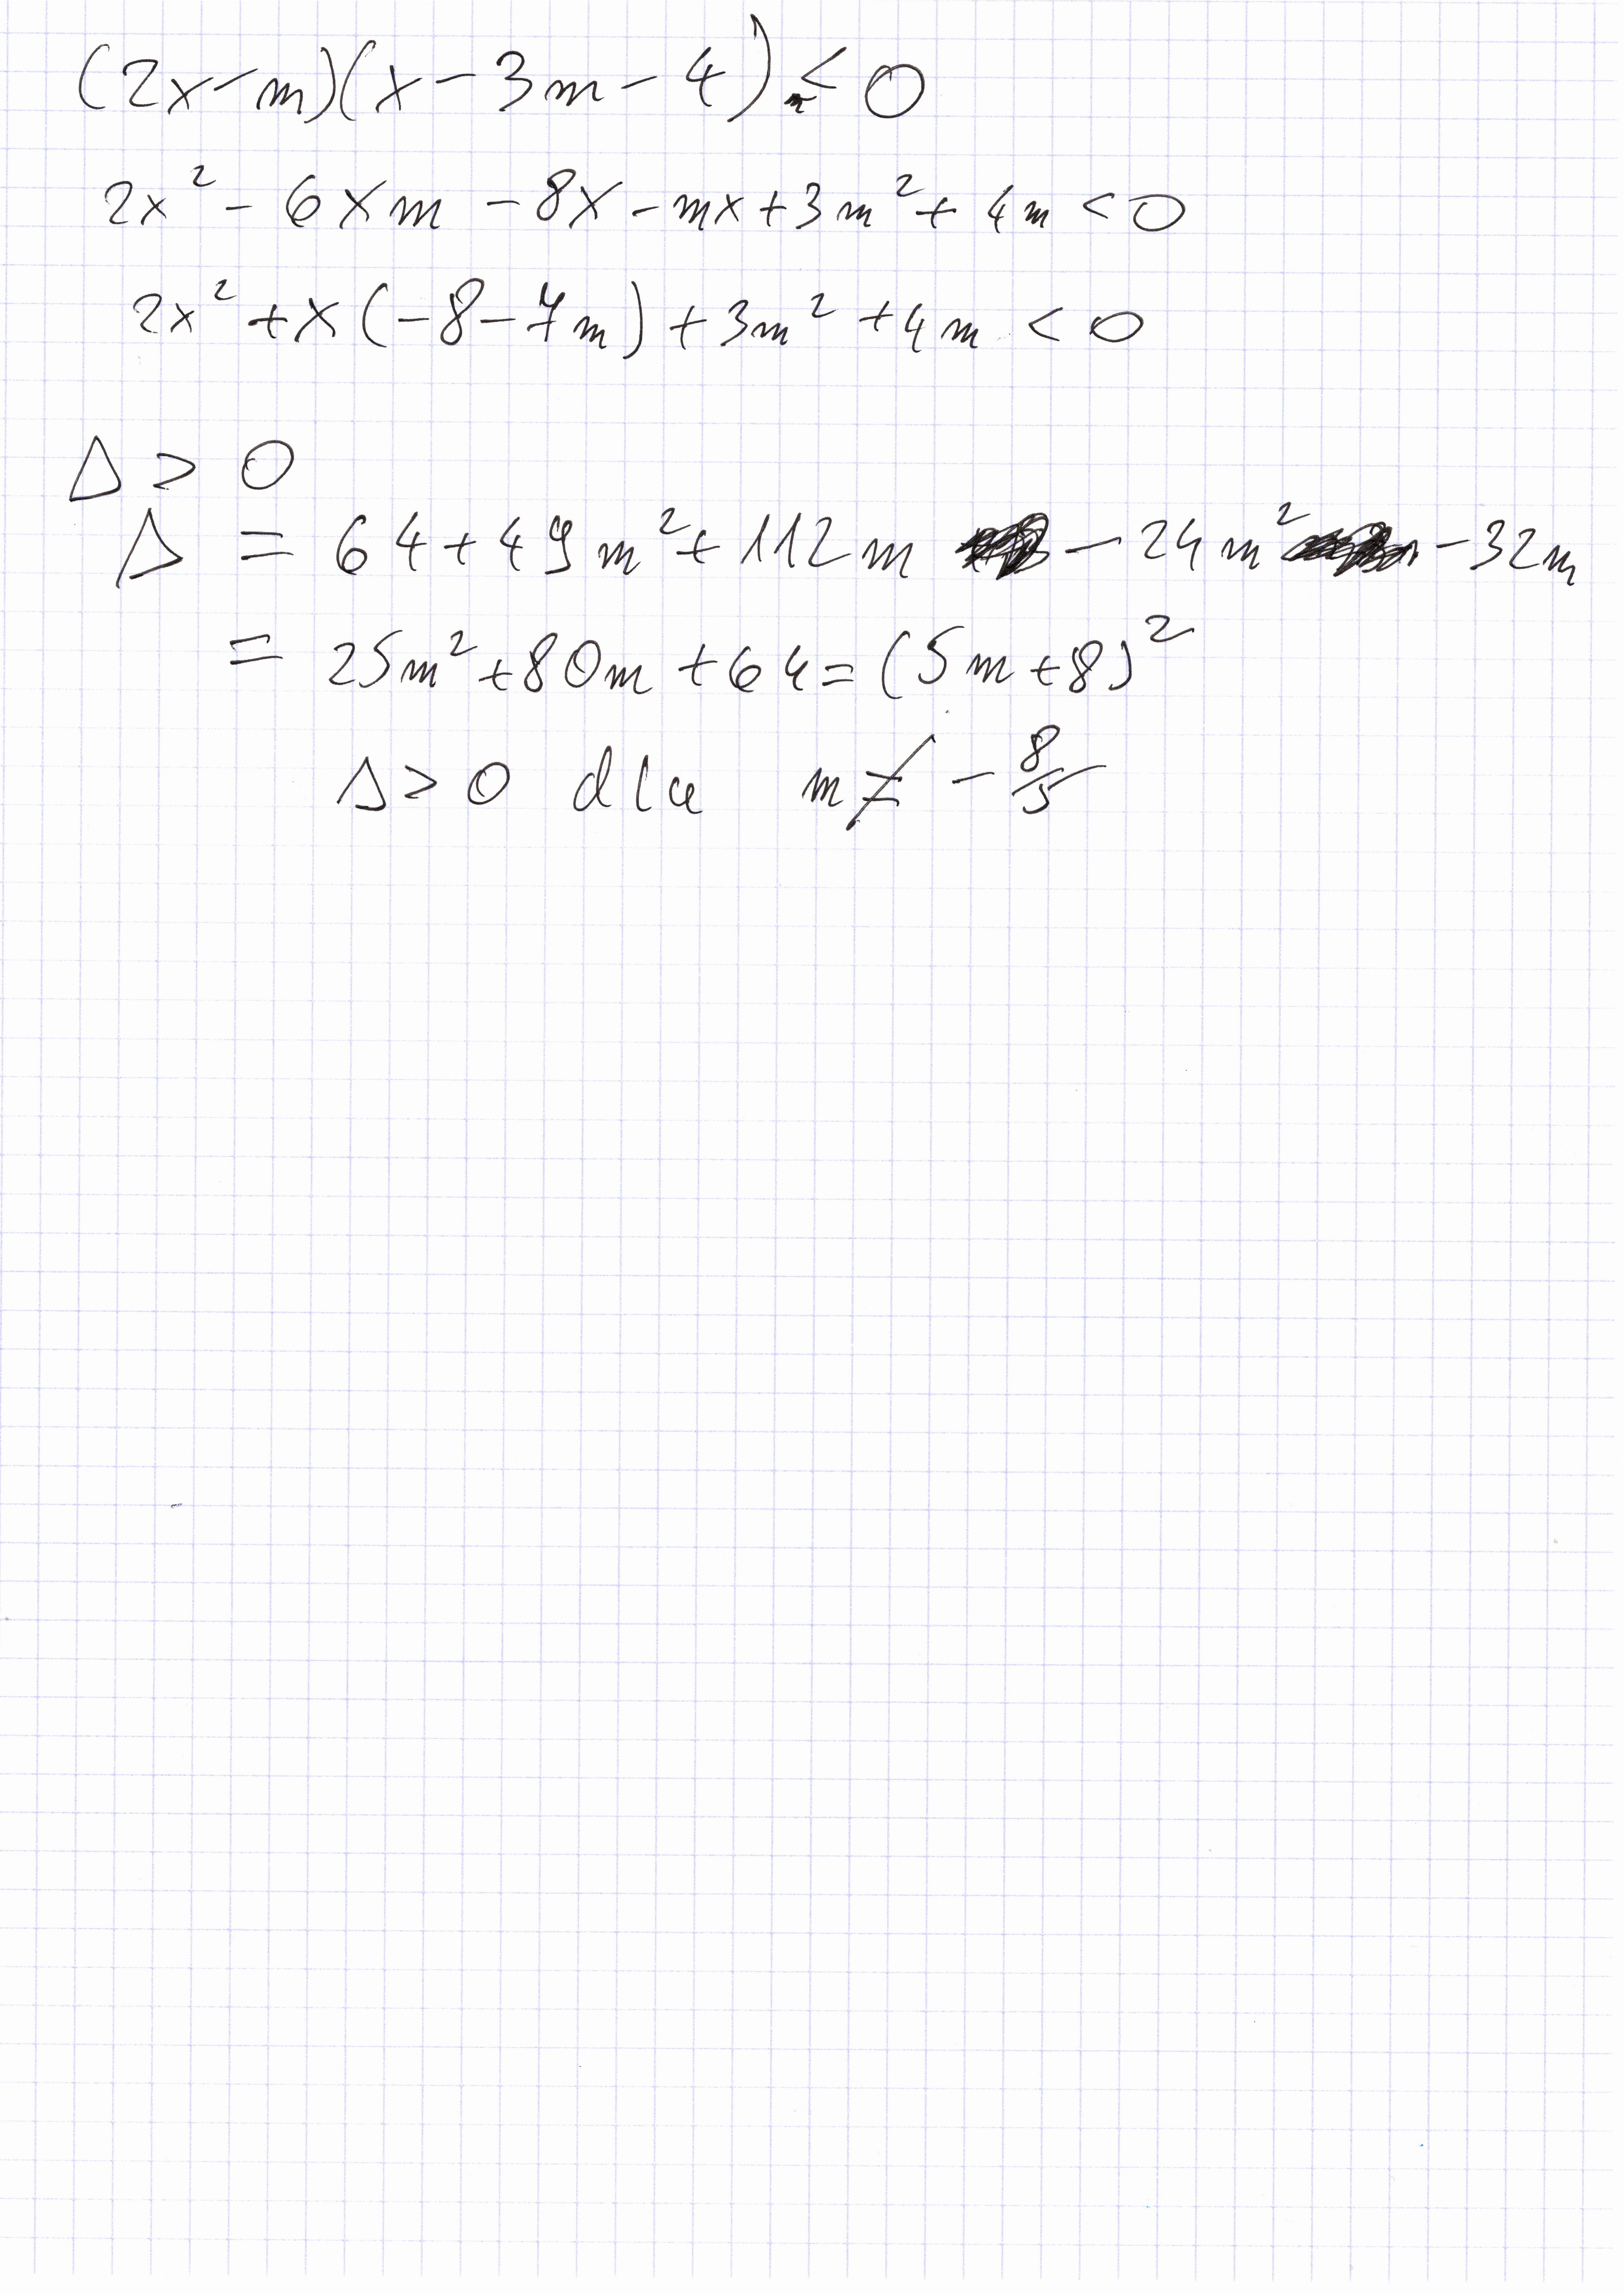 (2x-m)(x-3m-4) < 0
2x² - 6xm - 8x - mx + 3m² + 4m < 0
2x² + x(-8-7m) + 3m² + 4m < 0
Δ > 0
Δ = 64 + 49m² + 112m - 24m² - 32m
= 25m² + 80m + 64 = (5m+8)²
Δ > 0 dla m ≠ - 8/5